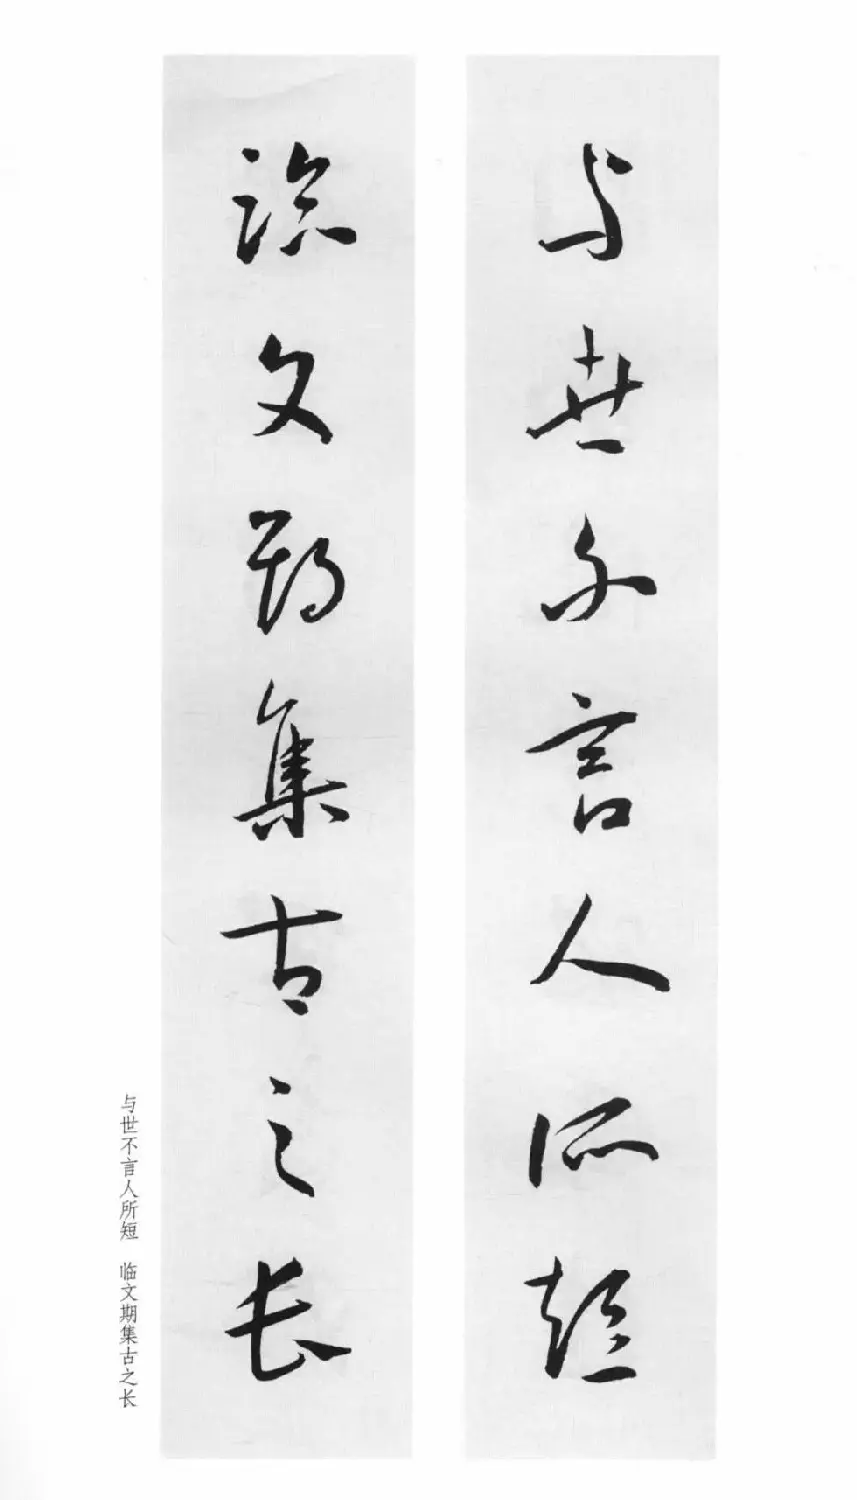 与世不言人所短
临文期集古之长
与世不言人所短 临文期集古之长